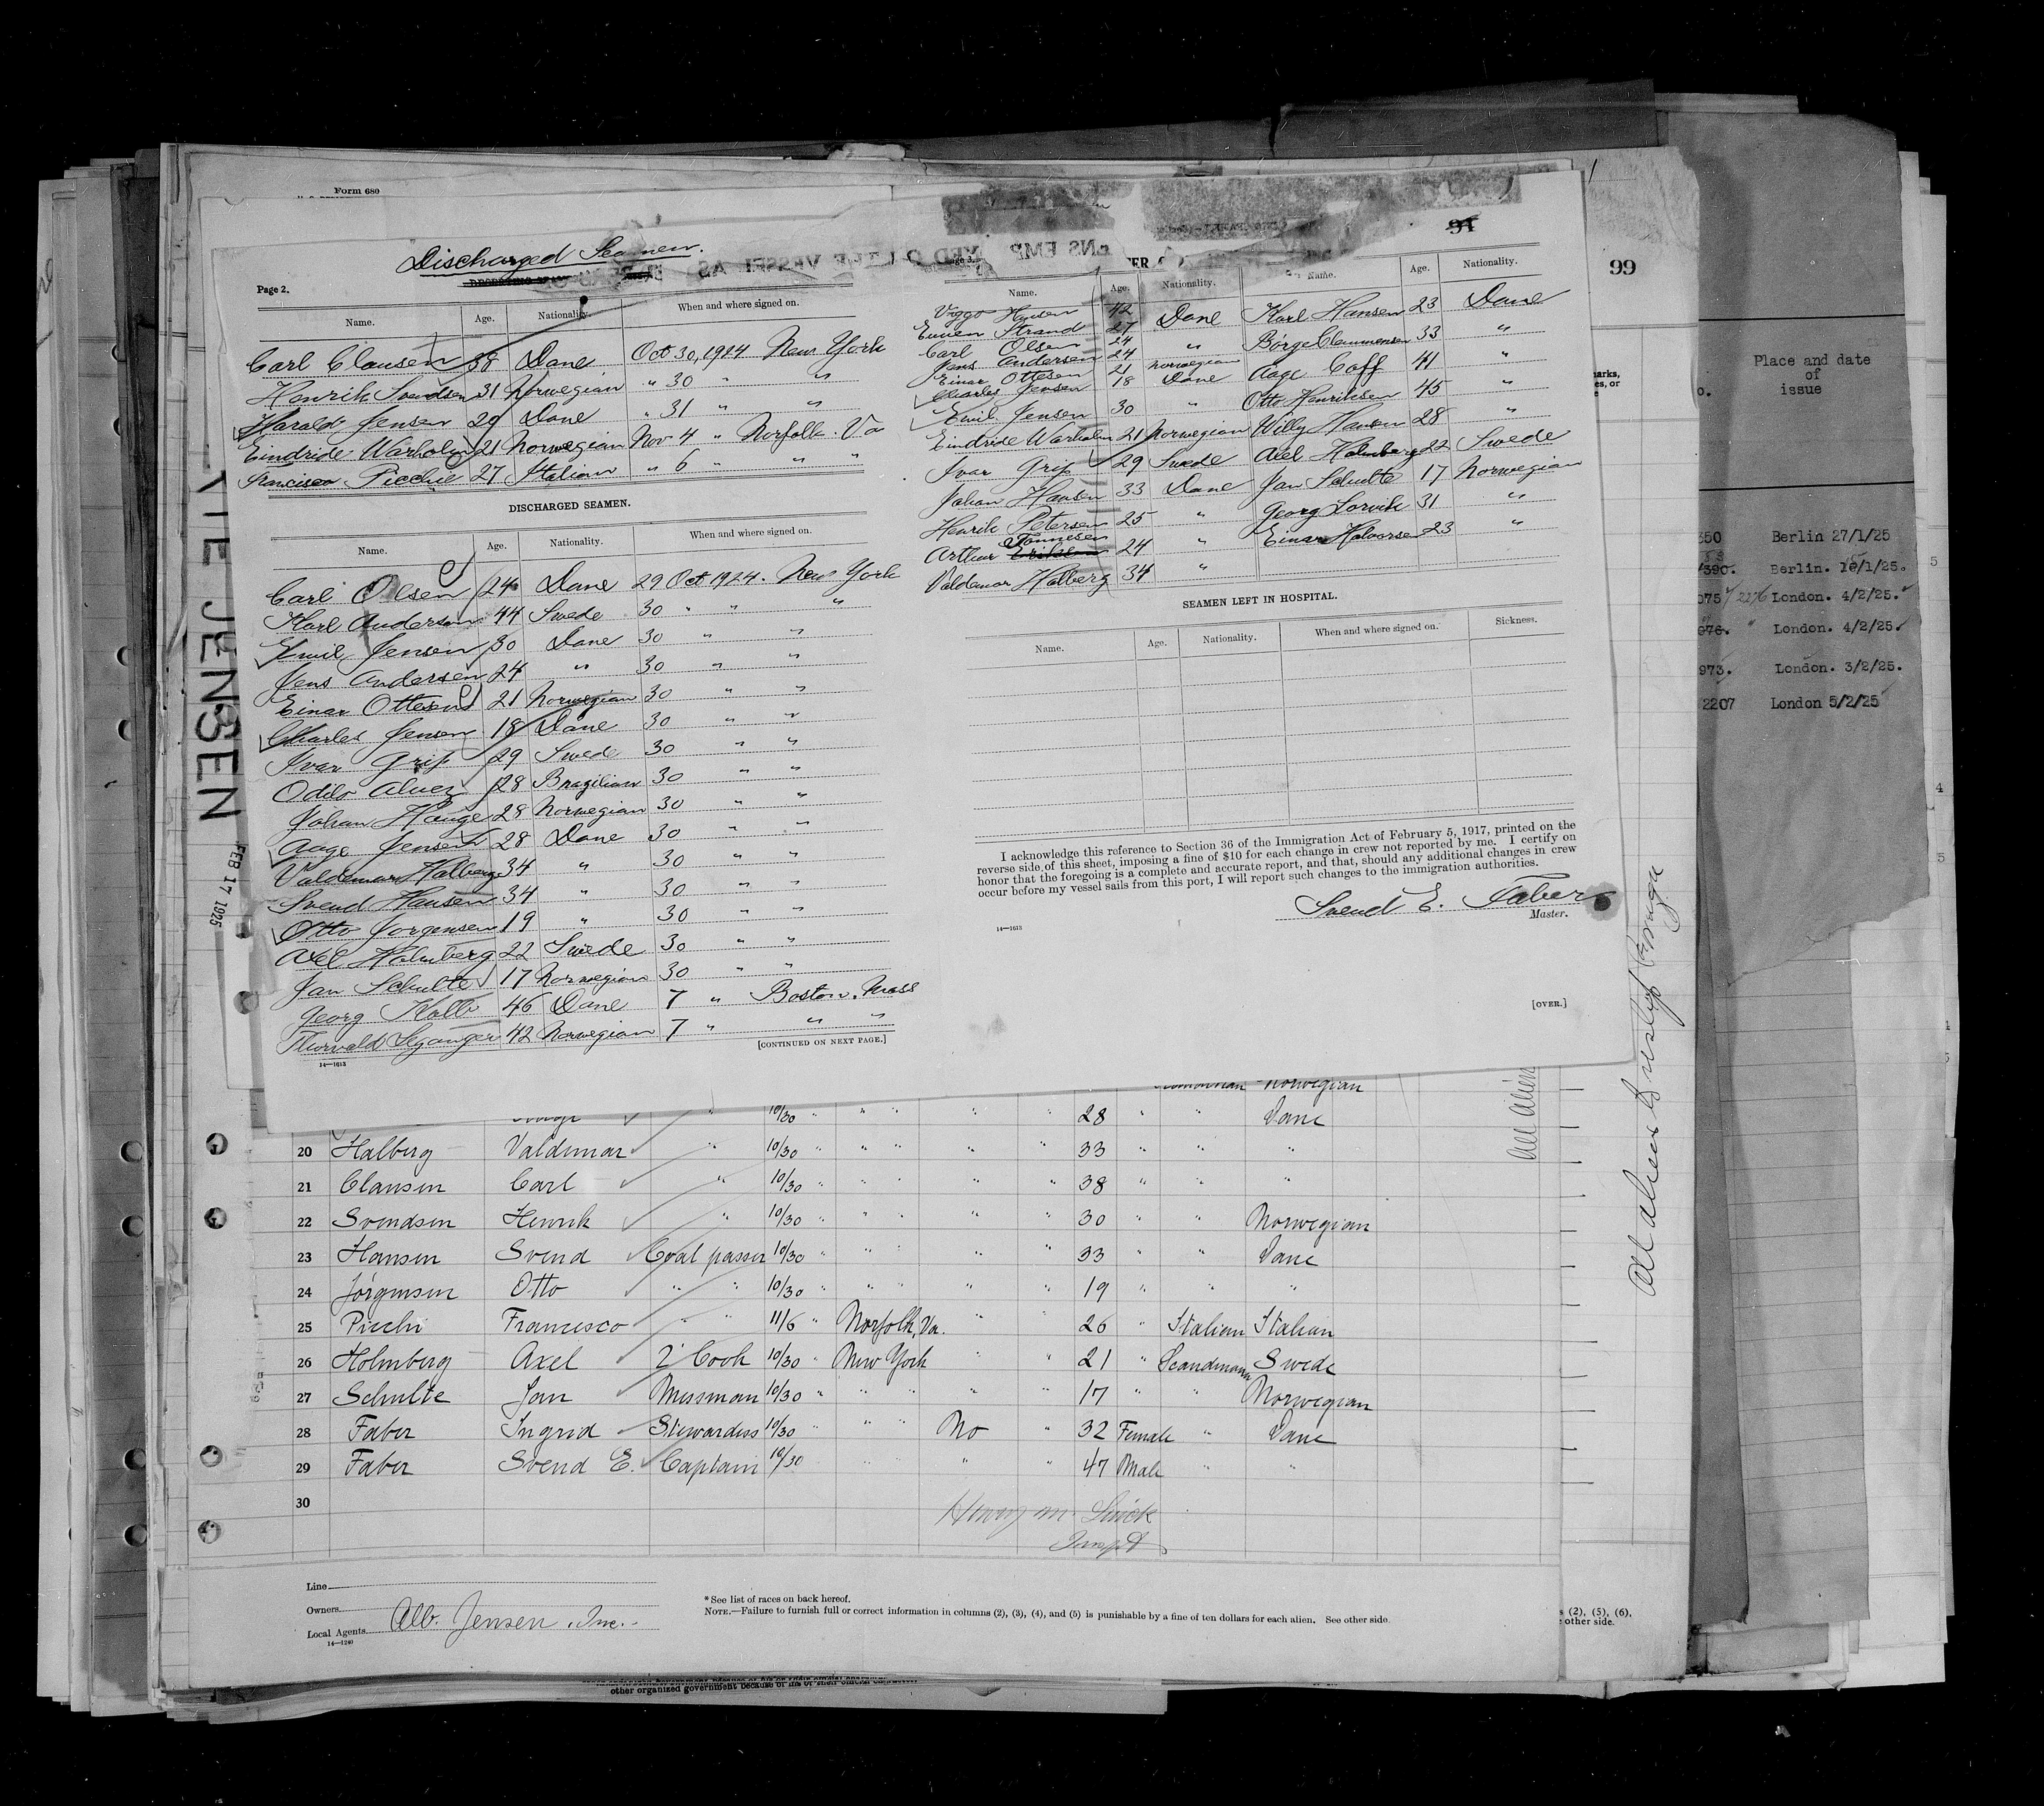 Form 680
Discharged Seamen.
Page 2.
Name. Age. Nationality. When and where signed on.
Carl Clausen 38 Dane Oct 30, 1924 New York
Henrik Svendsen 31 Norwegian " 30 " "
Harald Jensen 29 Dane " 31 " "
Eindride Warholm 21 Norwegian Nov 4 " Norfolk. Va
Francisco Picchie 27 Italian " 6 " " "
DISCHARGED SEAMEN.
Name. Age. Nationality. When and where signed on.
Carl Olsen 24 Dane 29 Oct 1924. New York
Karl Anderson 44 Swede 30 " " "
Emil Jensen 30 Dane 30 " "
Jens Andersen 24 " 30 " "
Einar Ottesen 21 Norwegian 30 " "
Charles Jensen 18 Dane 30 " "
Ivar Grip 29 Swede 30 " "
Odilo Alvez 28 Brazilian 30 " "
Johan Hauge 28 Norwegian 30 " "
Aage Jensen 28 Dane 30 " "
Valdemar Halberg 34 " 30 " "
Svend Hansen 34 " 30 " "
Otto Jorgensen 19 " 30 " "
Axel Holmberg 22 Swede 30 " "
Jan Schulte 17 Norwegian 30 " "
Georg Kolb 46 Dane 7 " Boston. Mass
Thorvald 42 Norwegian 7 " " "
[CONTINUED ON NEXT PAGE.]
14—1613
91
Name. Age. Nationality. Name. Age. Nationality.
Viggo Hansen 42 Dane Karl Hansen 23 Dane
Strand 27
Carl Olsen 24 " Börge Clemmensen 33 "
Jens Andersen 24
Einar Ottesen 21 Norwegian Aage Coff 41 "
Charles Jensen 18 Dane
Emil Jensen 30 " Otto Henriksen 45 "
Eindride Warholm 21 Norwegian Willy Hansen 28 "
Ivar Grip 29 Swede Axel Holmberg 22 Swede
Johan Hansen 33 Dane Jan Schulte 17 Norwegian
Henrik Petersen 25 " Georg Lorvik 31 "
Arthur Tonnesen 24 " Einar Halvorsen 23 "
Valdemar Halberg 34 "
SEAMEN LEFT IN HOSPITAL.
Name. Age. Nationality. When and where signed on. Sickness.
I acknowledge this reference to Section 36 of the Immigration Act of February 5, 1917, printed on the
reverse side of this sheet, imposing a fine of $10 for each change in crew not reported by me. I certify on
honor that the foregoing is a complete and accurate report, and that, should any additional changes in crew
occur before my vessel sails from this port, I will report such changes to the immigration authorities.
Svend E. Faber
Master.
14—1613
[OVER.]
JENSEN
FEB 17 1925
99
Place and date
of
issue
Berlin 27/1/25
Berlin. 15/1/25.
London. 4/2/25.
London. 4/2/25.
973. London. 3/2/25.
2207 London 5/2/25
Norwegian
10/30 " " " " " 28 " " Dane
20 Halberg Valdemar " 10/30 " " " " " 33 " " "
21 Clausen Carl " 10/30 " " " " " 38 " " "
22 Svendsen Henrik " 10/30 " " " " " 30 " " Norwegian
23 Hansen Svend Coal passer 10/30 " " " " " 33 " " Dane
24 Jørgensen Otto " " 10/30 " " " " " 19 " " "
25 Picchi Francesco " " 11/6 " Norfolk, Va. " " 26 " Italian Italian
26 Holmberg Axel 2' Cook 10/30 " New York " " 21 " Scandinavn Swede
27 Schulte Jan Messman 10/30 " " " " " 17 " " Norwegian
28 Faber Ingrid Stewardess 10/30 " " " No " 32 Female " Dane
29 Faber Svend E. Captain 10/30 " " " " 47 Male " "
30
Line
Owners
Local Agents Alb. Jensen, Inc.
14—1240
* See list of races on back hereof.
NOTE.—Failure to furnish full or correct information in columns (2), (3), (4), and (5) is punishable by a fine of ten dollars for each alien. See other side.
(2), (5), (6),
other side.
other organized government because of his or their official character